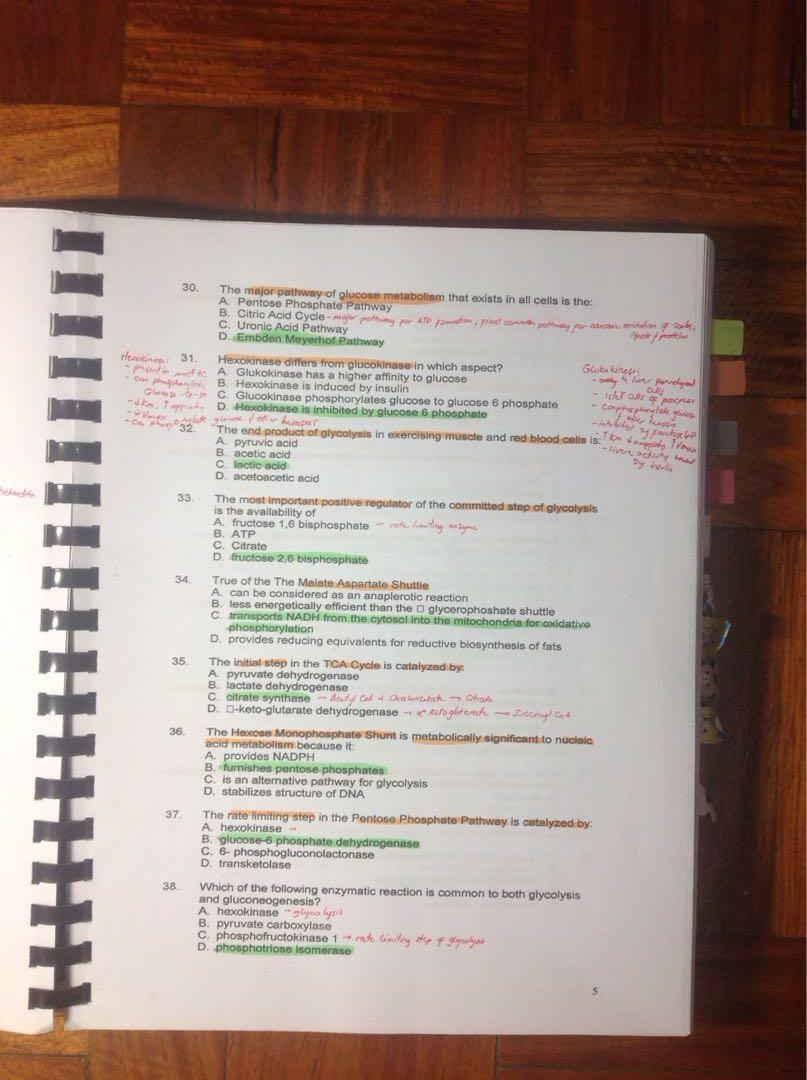 30. The major pathway of glucose metabolism that exists in all cells is the:
A. Pentose Phosphate Pathway
B. Citric Acid Cycle - major pathway for ATP formation; final common pathway for aerobic oxidation of carbs,
lipids / proteins
C. Uronic Acid Pathway
D. Embden Meyerhof Pathway
31. Hexokinase differs from glucokinase in which aspect?
A. Glukokinase has a higher affinity to glucose
B. Hexokinase is induced by insulin
C. Glucokinase phosphorylates glucose to glucose 6 phosphate
D. Hexokinase is inhibited by glucose 6 phosphate
Hexokinase:
- present in most
- can phosphorylate
Glucose
- ↓ km, ↑
glucose / other hexoses
Glukokinase:
- only in liver parenchymal
cells
- islet cells of pancreas
- can phosphorylate glucose
/ other hexoses
- inhibited by fructose 6P
- ↑ km ↓ affinity ↑ Vmax
- liver activity
by insulin
32. The end product of glycolysis in exercising muscle and red blood cells is:
A. pyruvic acid
B. acetic acid
C. lactic acid
D. acetoacetic acid
33. The most important positive regulator of the committed step of glycolysis
is the availability of
A. fructose 1,6 bisphosphate - rate limiting enzyme
B. ATP
C. Citrate
D. fructose 2,6 bisphosphate
34. True of the The Malate Aspartate Shuttle
A. can be considered as an anaplerotic reaction
B. less energetically efficient than the □ glycerophoshate shuttle
C. transports NADH from the cytosol into the mitochondria for oxidative
phosphorylation
D. provides reducing equivalents for reductive biosynthesis of fats
35. The initial step in the TCA Cycle is catalyzed by:
A. pyruvate dehydrogenase
B. lactate dehydrogenase
C. citrate synthase → Acetyl CoA + Oxaloacetate → Citrate
D. □-keto-glutarate dehydrogenase → α Ketoglutarate → Succinyl CoA
36. The Hexose Monophosphate Shunt is metabolically significant to nucleic
acid metabolism because it:
A. provides NADPH
B. furnishes pentose phosphates
C. is an alternative pathway for glycolysis
D. stabilizes structure of DNA
37. The rate limiting step in the Pentose Phosphate Pathway is catalyzed by:
A. hexokinase -
B. glucose-6 phosphate dehydrogenase
C. 6- phosphogluconolactonase
D. transketolase
38. Which of the following enzymatic reaction is common to both glycolysis
and gluconeogenesis?
A. hexokinase - glycolysis
B. pyruvate carboxylase
C. phosphofructokinase 1 → rate limiting step of glycolysis
D. phosphotriose Isomerase
5